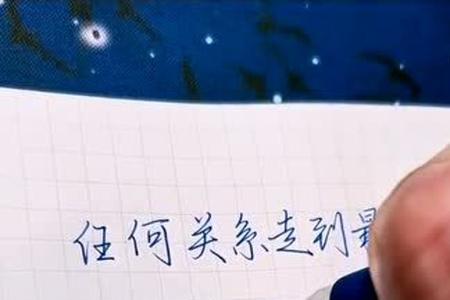 任何关系走到最